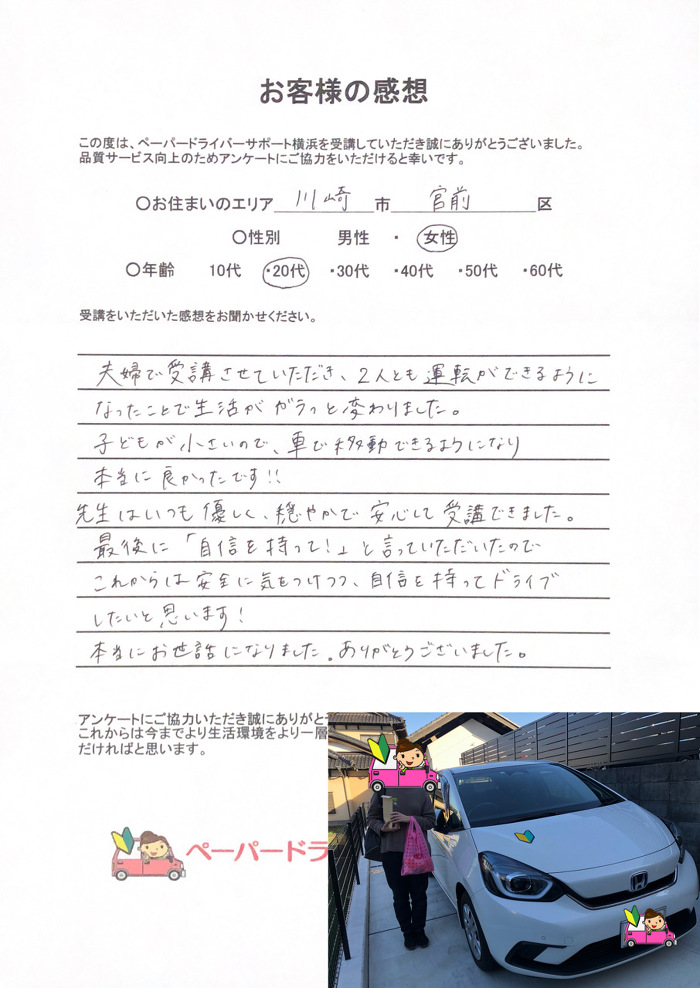 お客様の感想
この度は、ペーパードライバーサポート横浜を受講していただき誠にありがとうございました。
品質サービス向上のためアンケートにご協力をいただけると幸いです。
〇お住まいのエリア 川崎 市 宮前 区
〇性別 男性 ・ 女性
〇年齢 10代 ・20代 ・30代 ・40代 ・50代 ・60代
受講をいただいた感想をお聞かせください。
夫婦で受講させていただき、2人とも運転ができるように
なったことで生活がガラッと変わりました。
子どもが小さいので、車で移動できるようになり
本当に良かったです!!
先生はいつも優しく、穏やかで安心して受講できました。
最後に「自信を持って!」と言っていただいたので
これからは安全に気をつけつつ、自信を持ってドライブ
したいと思います!
本当にお世話になりました。ありがとうございました。
アンケートにご協力いただき誠にありがと
これからは今までより生活環境をより一層
だければと思います。
ペーパードラ